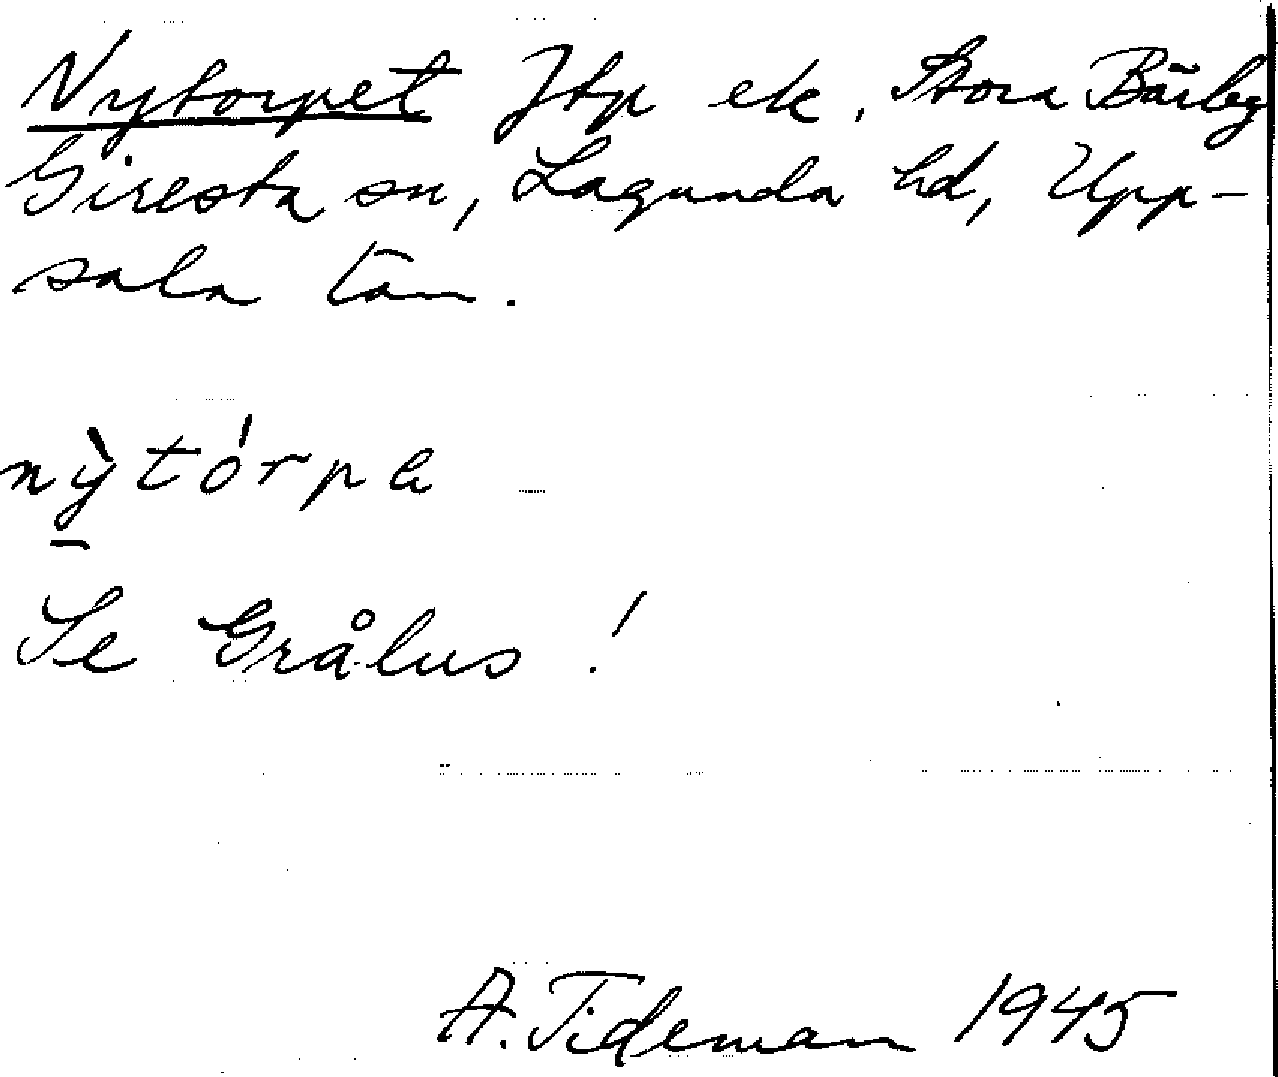 Nytorpet Jtp ek. Stora Bärby
Giresta sn, Lagunda hd, Upp-
sala län.
nỳtórpa
Se Grålus!
A. Tideman 1945